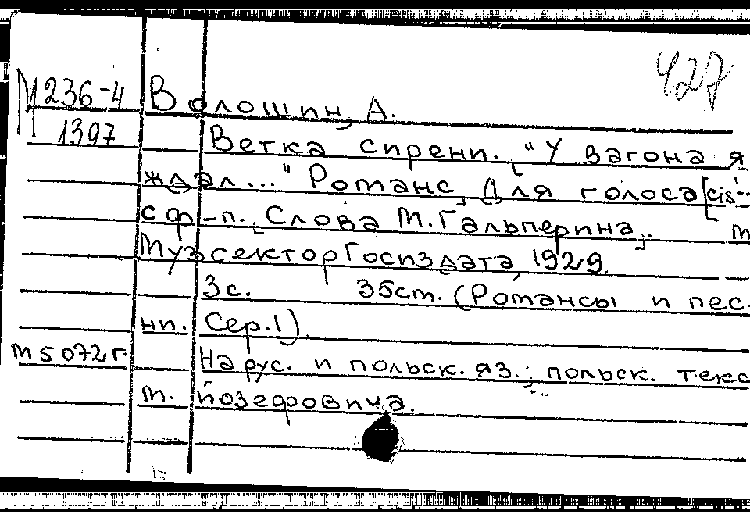 427
М236-4 Волошин, А.
1397 Ветка сирени. "У вагона я
ждал..." Романс. Для голоса [cis'-
с ф.-п. Слова М. Гальперина. м
Музсектор Госиздата, 1929.
3с. 35см. (Романсы и пес-
ни. Сер.1).
м5072г На рус. и польск. яз.; польск. текс
т.